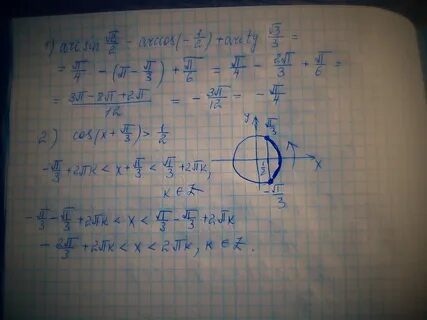 1) arcsin √2/2 - arccos(-1/2) + arctg √3/3 =
= π/4 - (π - π/3) + π/6 = π/4 - 2π/3 + π/6 =
= (3π - 8π + 2π)/12 = - 3π/12 = - π/4
2) cos(x + π/3) > 1/2
y
π/3
-π/3 + 2πk < x + π/3 < π/3 + 2πk,
k ∈ Z
1/2
x
-π/3
-π/3 - π/3 + 2πk < x < π/3 - π/3 + 2πk
- 2π/3 + 2πk < x < 2πk, k ∈ Z.